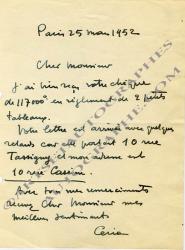 Paris 25 mars 1952
Cher Monsieur
J'ai bien reçu votre chèque
de 117000 en règlement de 2 petits
tableaux.
Votre lettre est arrivée avec quelque
retard car elle portait 10 rue
Tassigny et mon adresse est
10 rue Cassini.
Avec tous mes remerciements
Cher Monsieur mes
meilleurs sentiments
Ceria